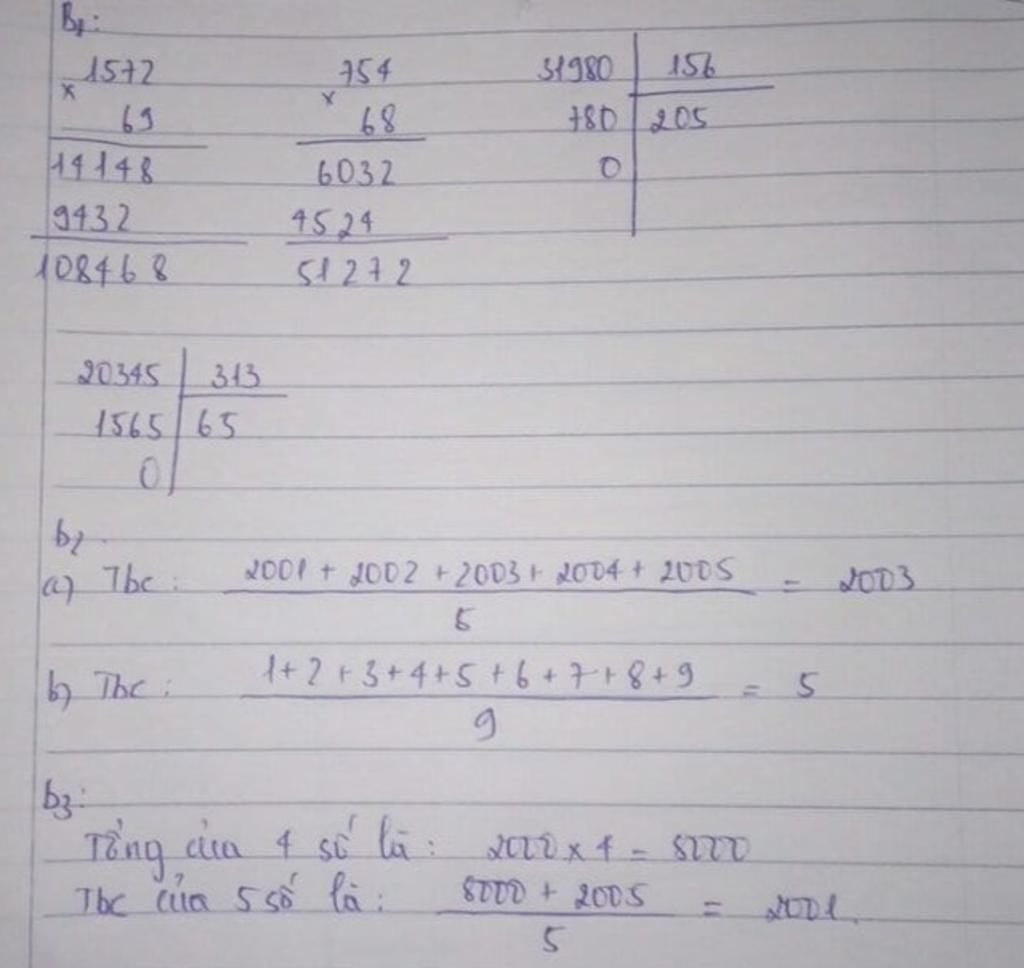 B1:
1572
x 69
14148
9432
108468
754
x 68
6032
4524
51272
31980 156
780 205
0
20345 313
1565 65
0
b2
a) Tbc: 2001 + 2002 + 2003 + 2004 + 2005 = 2003
5
b) Tbc: 1+2+3+4+5+6+7+8+9 = 5
9
b3:
Tổng của 4 số là: 2000 x 4 = 8000
Tbc của 5 số là: 8000 + 2005 = 2001.
5